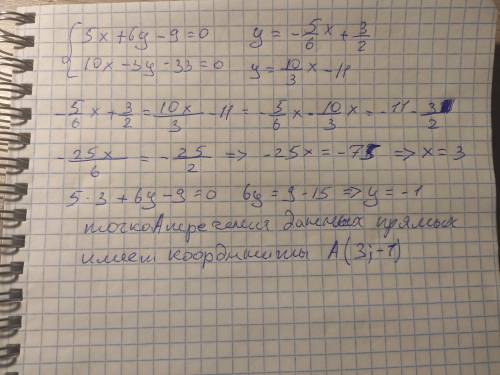 { 5x + 6y - 9 = 0 y = -5/6 x + 3/2
10x - 3y - 33 = 0 y = 10/3 x - 11
-5/6 x + 3/2 = 10x/3 - 11 = -5/6 x - 10/3 x = -11 - 3/2
-25x/6 = -25/2 => -25x = -75 => x = 3
5·3 + 6y - 9 = 0 6y = 9 - 15 => y = -1
точка данных прямых
имеет координаты A(3; -1)